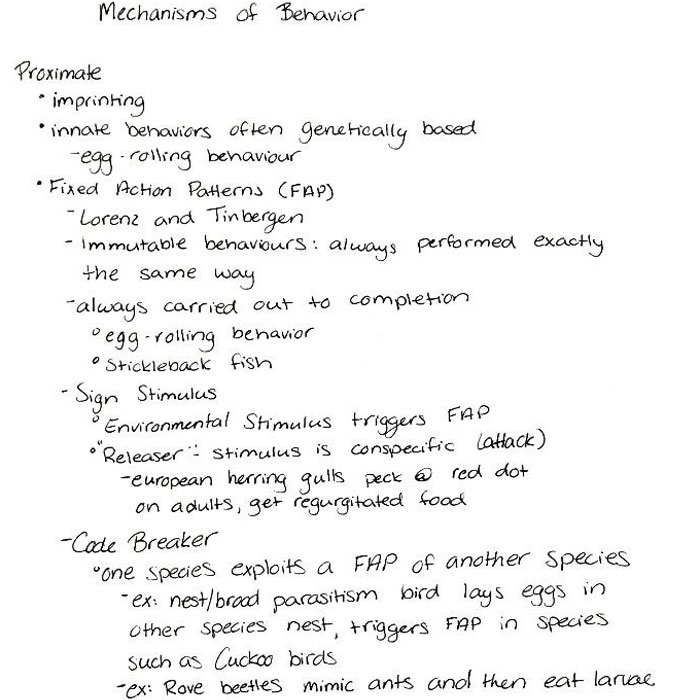 Mechanisms of Behavior
Proximate
• imprinting
• innate behaviors often genetically based
- egg-rolling behaviour
• Fixed Action Patterns (FAP)
- Lorenz and Tinbergen
- Immutable behaviours: always performed exactly
the same way
- always carried out to completion
° egg-rolling behavior
° Stickleback fish
- Sign Stimulus
° Environmental Stimulus triggers FAP
° "Releaser": stimulus is conspecific (attack)
- european herring gulls peck @ red dot
on adults, get regurgitated food
- Code Breaker
° one species exploits a FAP of another species
- ex: nest/brood parasitism bird lays eggs in
other species nest, triggers FAP in species
such as Cuckoo birds
- ex: Rove beetles mimic ants and then eat larvae